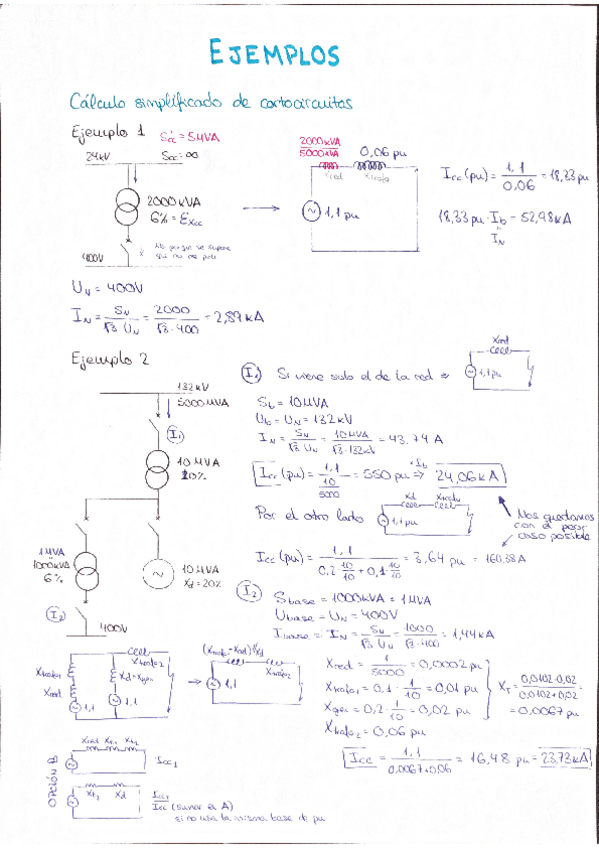 EJEMPLOS
Cálculo simplificado de cortocircuitos
Ejemplo 1
Scc = 5MVA
24kV
Scc = ∞
2000 kVA
6% = Excc
400V
No porque se supone
que no me pide
2000kVA
5000kVA
0,06 pu
Xred
Xtrafo
1,1 pu
Icc (pu) = 1,1 / 0,06 = 18,33 pu
18,33 pu · Ib = 52,98 kA
IN
UN = 400V
IN = SN / √3 UN = 2000 / √3 · 400 = 2,89 kA
Ejemplo 2
132 kV
5000 MVA
I1
10 MVA
10%
1 MVA
1000kVA
6%
10 MVA
Xd = 20%
I2
400V
I1 Si viene solo el de la red ⇒
Xred
1,1 pu
Sb = 10 MVA
Ub = UN = 132 kV
IN = SN / √3 UN = 10 MVA / √3 · 132kV = 43.74 A
Icc (pu) = 1,1 / 10/5000 = 550 pu ⇒ · Ib 24,06 kA
Por el otro lado
Xd
Xtrafo1
1,1 pu
Nos quedamos
con el peor
caso posible
Icc (pu) = 1,1 / 0,2 · 10/10 + 0,1 · 10/10 = 3,64 pu = 160,38A
I2 Sbase = 1000kVA = 1 MVA
Ubase = UN = 400V
Ibase = IN = SN / √3 UN = 1000 / √3 · 400 = 1,44 kA
Xtrafo1
Xred
Xtrafo2
Xd = Xgen
1,1
1,1
Xtrafo2
1,1
Xred = 1 / 5000 = 0,0002 pu
Xtrafo1 = 0,1 · 1/10 = 0,01 pu
Xgen = 0,2 · 1/10 = 0,02 pu
Xtrafo2 = 0,06 pu
XT = 0,0102 · 0,02 / 0,0102 + 0,02 = 0,0067 pu
Icc = 1,1 / 0,0067 + 0,06 = 16,48 pu = 23,73 kA
OPCIÓN B
Xred Xt1 Xt2
Icc1
Xt1 Xd
Icc (sumar en A)
si no usa la misma base de pu